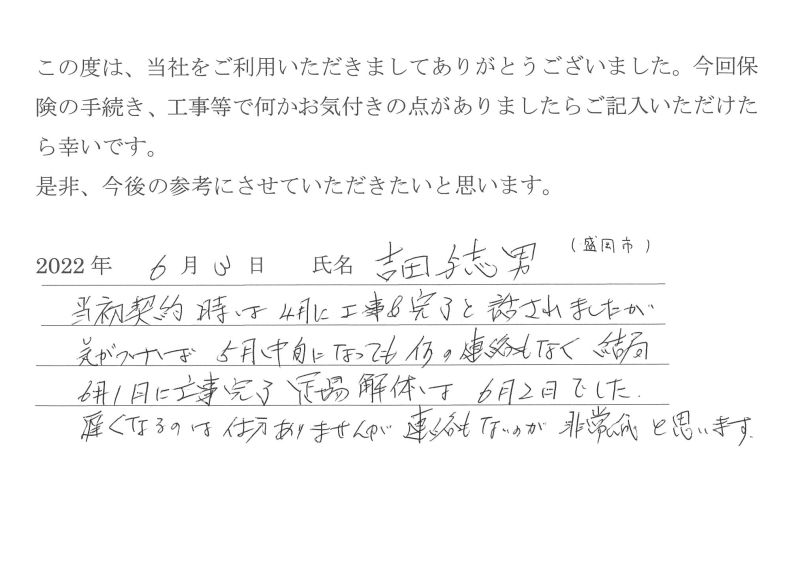 この度は、当社をご利用いただきましてありがとうございました。今回保
険の手続き、工事等で何かお気付きの点がありましたらご記入いただけた
ら幸いです。
是非、今後の参考にさせていただきたいと思います。
2022年 6月3日 氏名 吉田与志男 (盛岡市)
当初契約時は4月に工事も完了と話されましたが
気がつけば5月中旬になっても何の連絡もなく結局
6月1日に工事完了 足場解体は6月2日でした.
遅くなるのは仕方ありませんが連絡もないのが非常識と思います.